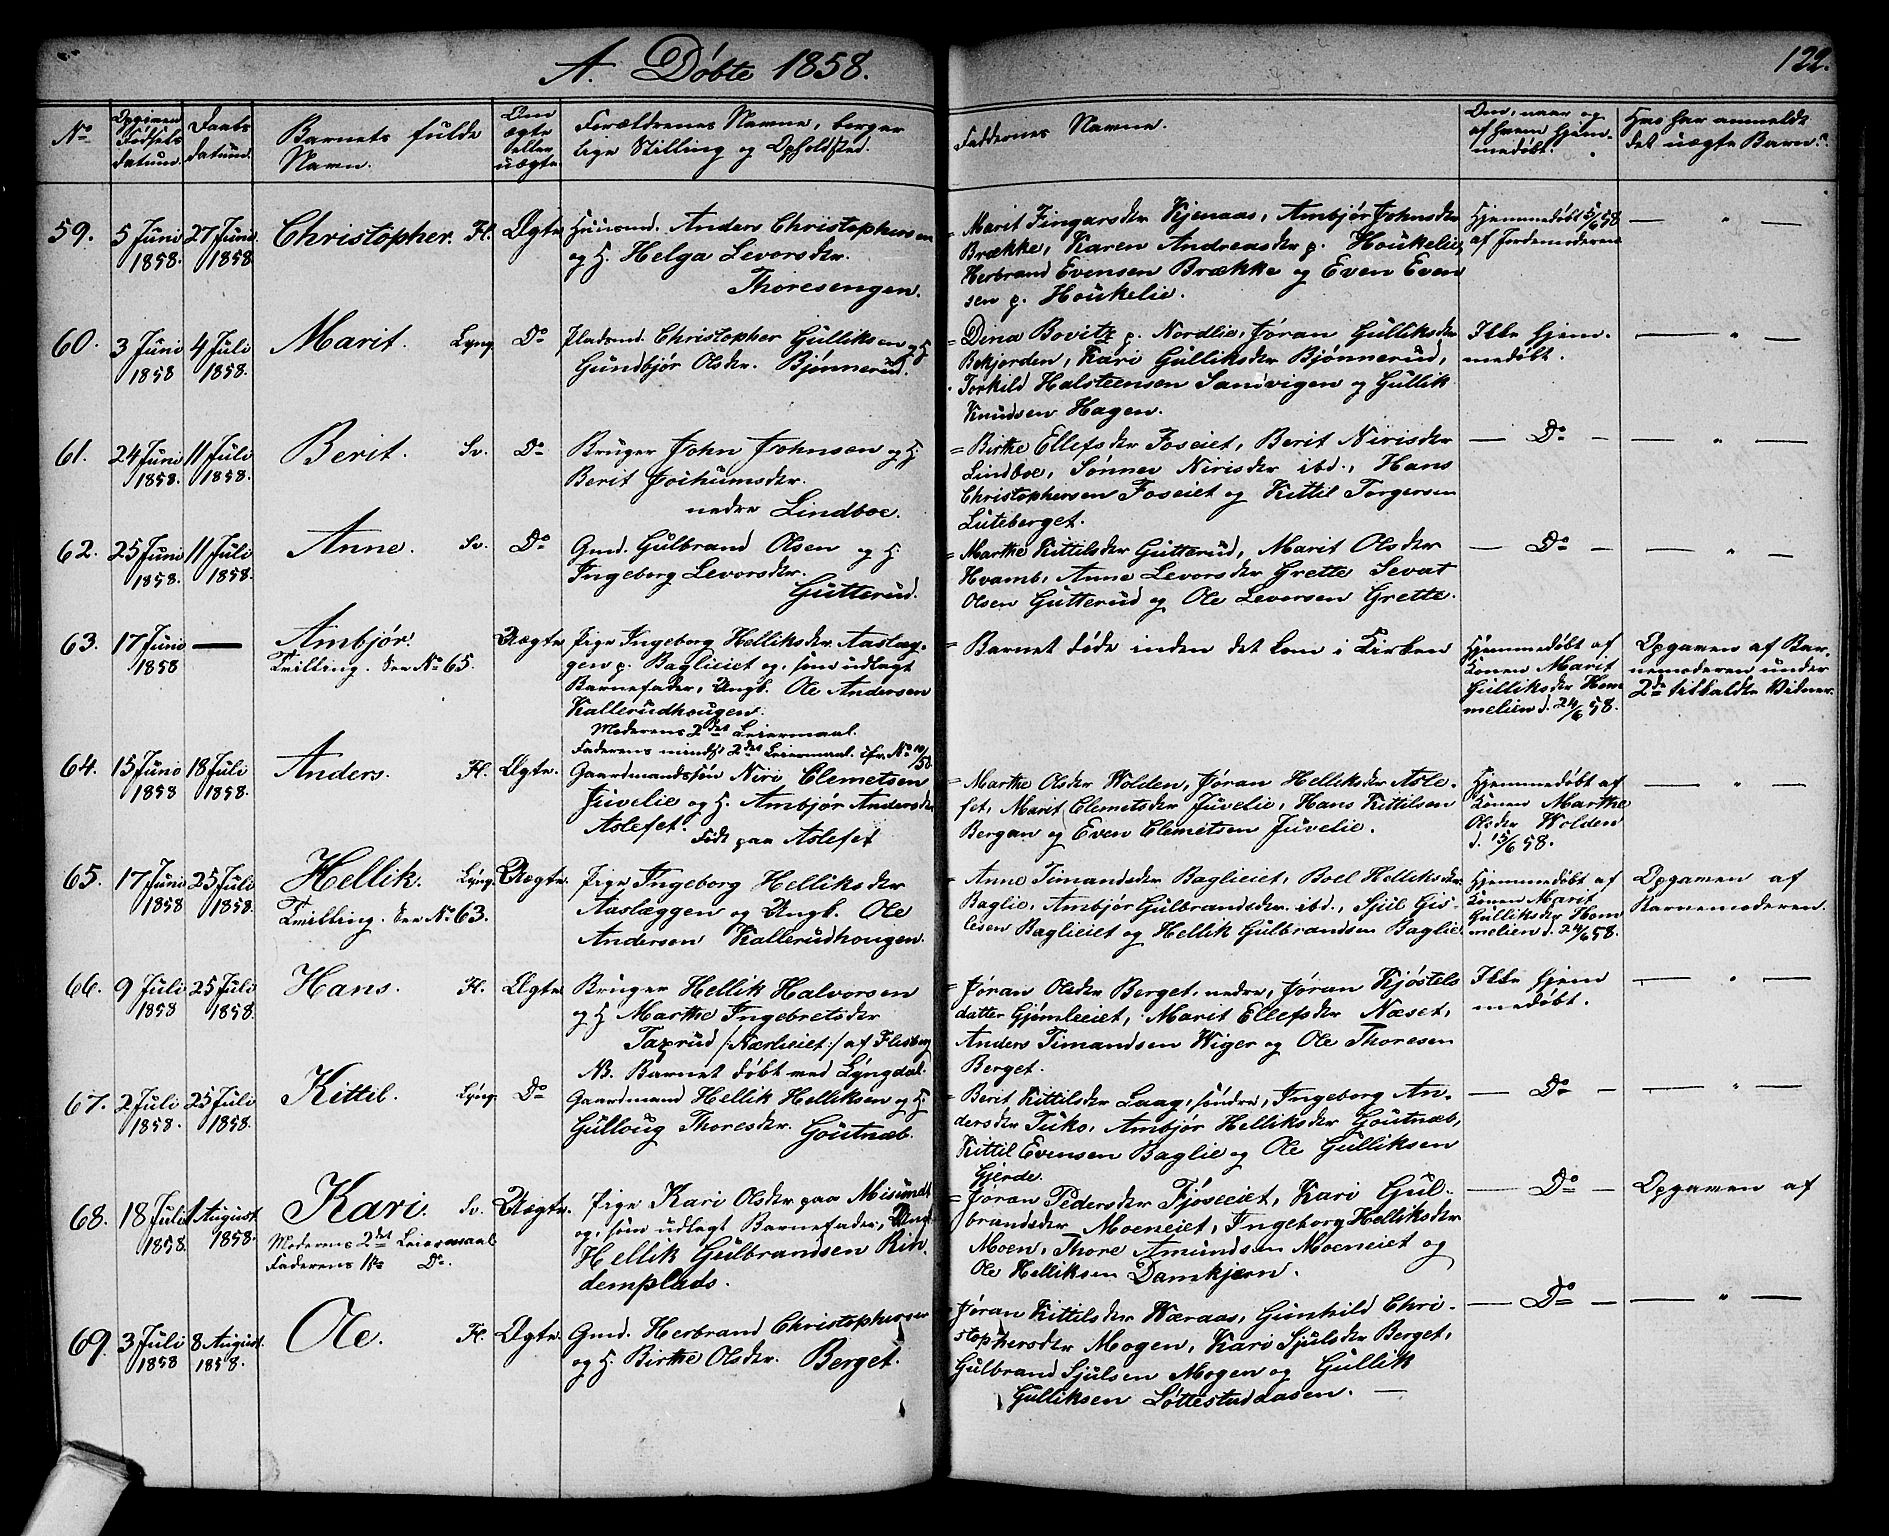 A. Døbte 1858.
122.
No
Opgiven Fødsels datum.
Daabs datum.
Barnets fulde Navn.
Om ægte eller uægte
Forældrenes Navne, borger
lige Stilling og Opholdsted.
Faddernes Navne.
Om, naar og af hvem hjem-
medøbt.
Hvo har anmeldt
det uægte Barn?
59. 5 Juni 1858. 27 Juni 1858 Christopher. Fl. Ægte
Huusmd. Anders Christophersen
og H. Helga Levorsdr.
Thoresengen.
= Marit Fingarsdr Kjenaas, Ambjør Johnsdr
Brække, Karen Andreasdr p. Houkelie,
Herbrand Evensen Brække og Even Even
sen p. Houkelie.
Hjemmedøbt 5/6 58
af Jordemoderen
60. 3 Juni 1858 4 Juli 1858. Marit. Lyng. Do
Pladsmd. Christopher Gulliksen og H
Gundbjør Olsdr. Bjønnerud.
= Dina Bovitz p. Nordlie, Jøran Gulliksdr
Bekjorden, Kari Gulliksdr Bjønnerud,
Torkild Halsteensen Sandvigen og Gullik
Knudsen Hagen.
Ikke hjem-
medøbt.
61. 24 Juni 1858. 11 Juli 1858. Berit. Sv. Do
Bruger John Johnsen og H.
Berit Jochumsdr.
nedre Lindboe.
= Birthe Ellefsdr Foseiet, Berit Nirisdr
Lindboe, Sønnev Nirisdr ibd., Hans
Christophersen Foseiet og Kittil Torgersen
Luteberget.
Do
62. 25 Juni 1858. 11 Juli 1858. Anne. Sv. Do
Gmd. Gulbrand Olsen og H
Ingeborg Levorsdr.
Gutterud.
= Marthe Kittilsdr Gutterud, Marit Olsdr
Hvamb, Anne Levorsdr Grette Sevat
Olsen Gutterud og Ole Levorsen Grette.
Do
63. 17 Juni 1858 Ambjør.
Tvilling. See No 65.
Uægte
Pige Ingeborg Helliksdr Aaslæg-
gen p. Baglieiet og, som udlagt
Barnefader, Ungk. Ole Andersen
Kallerudhougen.
Moderens 2det Leiermaal.
Faderens mindst 2det Leiermaal.
= Barnet døde inden det kom i Kirken
Hjemmedøbt af
Konen Marit
Gulliksdr Hom
melien d. 24/6 58.
Opgaven af Bar-
nemoderen under
2de tilkaldte Vidner.
64. 15 Juni 1858 18 Juli 1858. Anders. Fl. Ægte.
Gaardmandssøn Niri Clemetsen
Juvelie og H. Ambjør Andersdr
Aslefet. Født paa Aslefet
= Marthe Olsdr Wolden, Jøran Helliksdr Asle-
fet, Marit Clemetsdr Juvelie, Hans Kittilsen
Bergan og Even Clemetsen Juvelie.
Hjemmedøbt af
Konen Marthe
Olsdr Wolden
d. 15/6 58.
65. 17 Juni 1858 25 Juli 1858. Hellik. Lyng. Uægte.
Tvilling. See No 63.
Pige Ingeborg Helliksdr
Aaslæggen og Ungk. Ole
Andersen Kallerudhougen.
= Anne Timandsdr Baglieiet, Boel Helliksdr
Baglie, Ambjør Gulbrandsdr ibd., Sjul Gis-
lesen Baglieiet og Hellik Gulbrandsen Baglie.
Hjemmedøbt af
Konen Marit
Gulliksdr Hom
melien d. 24/6 58.
Opgaven af
Barnemoderen.
66. 9 Juli 1858 25 Juli 1858. Hans. Fl. Ægte
Bruger Hellik Halvorsen
og H Marthe Ingebretsdr
Taxrud /:Nærlieiet:/ af Flesberg
NB. Barnet døbt ved Lyngdal.
= Jøran Olsdr Berget, nedre, Jøran Kjøstels
datter Gjømleeiet, Marit Ellefsdr Næset,
Anders Timandsen Wiger og Ole Thoresen
Berget.
Ikke hjem
medøbt.
67. 2 Juli 1858. 25 Juli 1858. Kittil. Lyng. Do
Gaardmand Hellik Helliksen og H
Gulloug Thoresdr. Goutnæb.
= Berit Kittilsdr Laag, søndre, Ingeborg An-
dersdr Tuko, Ambjør Helliksdr Goutnæb,
Kittil Evensen Baglie og Ole Gulliksen
Gjerde.
Do
68. 18 Juli 1858. 1 August 1858. Kari. Sv. Uægte.
Moderens 2det Leiermaal
Faderens 1ste Do.
Pige Kari Olsdr paa Misundt
og, som udlagt Barnefader, Ungk
Hellik Gulbrandsen Rin-
demplads.
= Jøran Pedersdr Fjøseeiet, Kari Gul-
brandsdr Moeneiet, Ingeborg Helliksdr
Moen, Thore Amundsen Moeneiet og
Ole Helliksen Damkjern.
Do
Opgaven af
69. 3 Juli 1858 8 August 1858. Ole. Fl. Ægte.
Gmd. Herbrand Christophersen
og H. Birthe Olsdr. Berget.
= Jøran Kittilsdr Wæraas, Gunhild Chri-
stophersdr Mogen, Kari Sjulsdr Berget,
Gulbrand Sjulsen Mogen og Gullik
Gulliksen Løttestuddasen.
Do